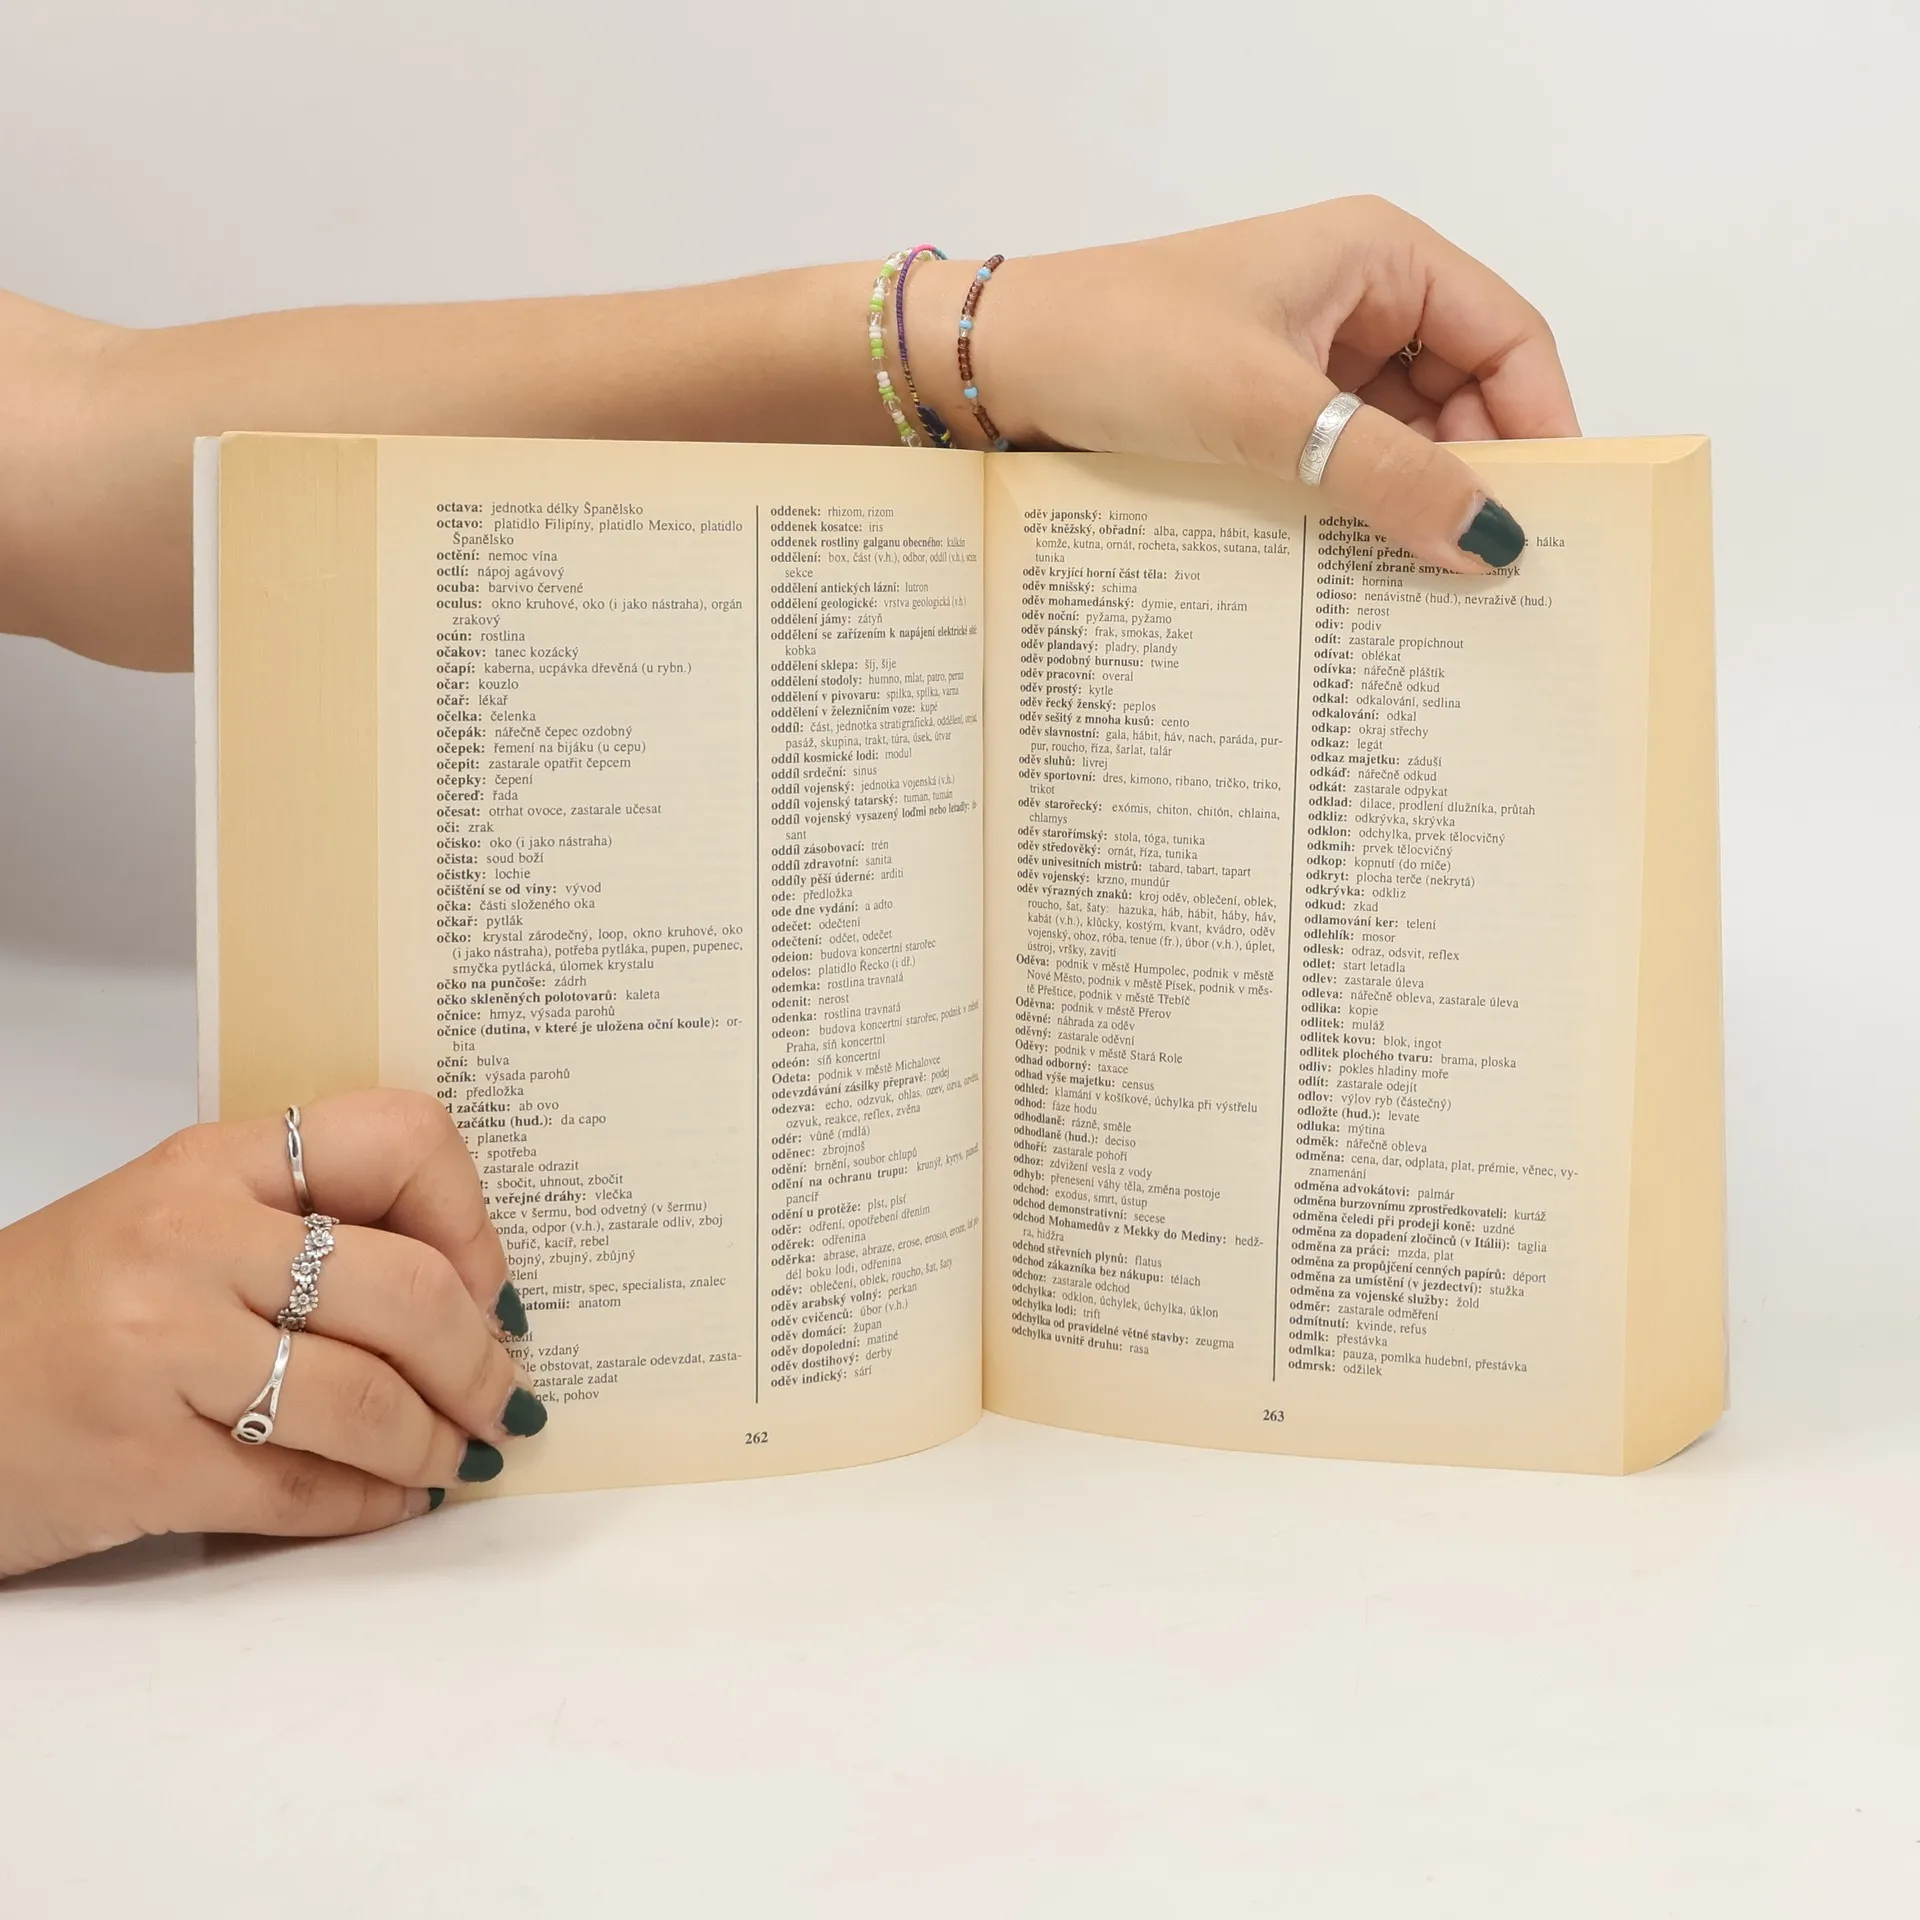 octava: jednotka délky Španělsko
octavo: platidlo Filipíny, platidlo Mexico, platidlo
Španělsko
octění: nemoc vína
octlí: nápoj agávový
ocuba: barvivo červené
oculus: okno kruhové, oko (i jako nástraha), orgán
zrakový
ocún: rostlina
očakov: tanec kozácký
očapí: kaberna, ucpávka dřevěná (u rybn.)
očar: kouzlo
očař: lékař
očelka: čelenka
očepák: nářečně čepec ozdobný
očepek: řemení na bijáku (u cepu)
očepit: zastarale opatřit čepcem
očepky: čepení
očereď: řada
očesat: otrhat ovoce, zastarale učesat
oči: zrak
očisko: oko (i jako nástraha)
očista: soud boží
očistky: lochie
očištění se od viny: vývod
očka: části složeného oka
očkař: pytlák
očko: krystal zárodečný, loop, okno kruhové, oko
(i jako nástraha), potřeba pytláka, pupen, pupenec,
smyčka pytlácká, úlomek krystalu
očko na punčoše: zádrh
očko skleněných polotovarů: kaleta
očnice: hmyz, výsada parohů
očnice (dutina, v které je uložena oční koule): or-
bita
oční: bulva
očník: výsada parohů
od: předložka
začátku: ab ovo
začátku (hud.): da capo
planetka
spotřeba
zastarale odrazit
sbočit, uhnout, zbočit
veřejné dráhy: vlečka
akce v šermu, bod odvetný (v šermu)
odpor (v.h.), zastarale odliv, zboj
buřič, kacíř, rebel
zbujný, zbůjný
mistr, spec, specialista, znalec
anatom
vzdaný
obstovat, zastarale odevzdat, zasta-
zastarale zadat
pohov
262
oddenek: rhizom, rizom
oddenek kosatce: iris
oddenek rostliny galganu obecného: kalkán
oddělení: box, část (v.h.), odbor, oddíl (v.h.),
sekce
oddělení antických lázní: lutron
oddělení geologické: vrstva geologická (v.h.)
oddělení jámy: zátyň
oddělení se zařízením k napájení elektrické sítě:
kobka
oddělení sklepa: šíj, šíje
oddělení stodoly: humno, mlat, patro, perna
oddělení v pivovaru: spilka, spílka, varna
oddělení v železničním voze: kupé
oddíl: část, jednotka stratigrafická, oddělení,
pasáž, skupina, trakt, túra, úsek, útvar
oddíl kosmické lodi: modul
oddíl srdeční: sinus
oddíl vojenský: jednotka vojenská (v.h.)
oddíl vojenský tatarský: tuman, tumán
oddíl vojenský vysazený loďmi nebo letadly:
sant
oddíl zásobovací: trén
oddíl zdravotní: sanita
oddíly pěší úderné: arditi
ode: předložka
ode dne vydání: a adto
odečet: odečtení
odečtení: odčet, odečet
odeion: budova koncertní starořec
odelos: platidlo Řecko (i dř.)
odemka: rostlina travnatá
odenit: nerost
odenka: rostlina travnatá
odeon: budova koncertní starořec, podnik v městě
Praha, síň koncertní
odeón: síň koncertní
Odeta: podnik v městě Michalovce
odevzdávání zásilky přepravě: podej
odezva: echo, odzvuk, ohlas, ozev, ozva, ozvěna,
ozvuk, reakce, reflex, zvěna
odér: vůně (mdlá)
oděnec: zbrojnoš
odění: brnění, soubor chlupů
odění na ochranu trupu: krunýř, kyrys,
pancíř
odění u protěže: plst, plsť
oděr: odření, opotřebení dřením
oděrek: odřenina
oděrka: abrase, abraze, erose, erosio, eroze,
děl boku lodi, odřenina
oděv: oblečení, oblek, roucho, šat, šaty
oděv arabský volný: perkan
oděv cvičenců: úbor (v.h.)
oděv domácí: župan
oděv dopolední: matiné
oděv dostihový: derby
oděv indický: sárí
oděv japonský: kimono
oděv kněžský, obřadní: alba, cappa, hábit, kasule,
komže, kutna, ornát, rocheta, sakkos, sutana, talár,
tunika
oděv kryjící horní část těla: život
oděv mnišský: schima
oděv mohamedánský: dymie, entari, ihrám
oděv noční: pyžama, pyžamo
oděv pánský: frak, smokas, žaket
oděv plandavý: pladry, plandy
oděv podobný burnusu: twine
oděv pracovní: overal
oděv prostý: kytle
oděv řecký ženský: peplos
oděv sešitý z mnoha kusů: cento
oděv slavnostní: gala, hábit, háv, nach, paráda, pur-
pur, roucho, říza, šarlat, talár
oděv sluhů: livrej
oděv sportovní: dres, kimono, ribano, tričko, triko,
trikot
oděv starořecký: exómis, chiton, chitón, chlaina,
chlamys
oděv starořímský: stola, tóga, tunika
oděv středověký: ornát, říza, tunika
oděv univesitních mistrů: tabard, tabart, tapart
oděv vojenský: krzno, mundúr
oděv výrazných znaků: kroj oděv, oblečení, oblek,
roucho, šat, šaty: hazuka, háb, hábit, háby, háv,
kabát (v.h.), klůcky, kostým, kvant, kvádro, oděv
vojenský, ohoz, róba, tenue (fr.), úbor (v.h.), úplet,
ústroj, vršky, zavití
Oděva: podnik v městě Humpolec, podnik v městě
Nové Město, podnik v městě Písek, podnik v měs-
tě Přeštice, podnik v městě Třebíč
Oděvna: podnik v městě Přerov
oděvné: náhrada za oděv
oděvný: zastarale oděvní
Oděvy: podnik v městě Stará Role
odhad odborný: taxace
odhad výše majetku: census
odhled: klamání v košíkové, úchylka při výstřelu
odhod: fáze hodu
odhodlaně: rázně, směle
odhodlaně (hud.): deciso
odhoří: zastarale pohoří
odhoz: zdvižení vesla z vody
odhyb: přenesení váhy těla, změna postoje
odchod: exodus, smrt, ústup
odchod demonstrativní: secese
odchod Mohamedův z Mekky do Mediny: hedž-
ra, hidžra
odchod střevních plynů: flatus
odchod zákazníka bez nákupu: télach
odchoz: zastarale odchod
odchylka: odklon, úchylek, úchylka, úklon
odchylka lodi: trift
odchylka od pravidelné větné stavby: zeugma
odchylka uvnitř druhu: rasa
odchylka ve : hálka
odchýlení
odchýlení zbraně
odinit: hornina
odioso: nenávistně (hud.), nevraživě (hud.)
odith: nerost
odiv: podiv
odít: zastarale propíchnout
odívat: oblékat
odívka: nářečně pláštík
odkaď: nářečně odkud
odkal: odkalování, sedlina
odkalování: odkal
odkap: okraj střechy
odkaz: legát
odkaz majetku: záduší
odkáď: nářečně odkud
odkát: zastarale odpykat
odklad: dilace, prodlení dlužníka, průtah
odkliz: odkrývka, skrývka
odklon: odchylka, prvek tělocvičný
odkmih: prvek tělocvičný
odkop: kopnutí (do míče)
odkryt: plocha terče (nekrytá)
odkrývka: odkliz
odkud: zkad
odlamování ker: telení
odlehlík: mosor
odlesk: odraz, odsvit, reflex
odlet: start letadla
odlev: zastarale úleva
odleva: nářečně obleva, zastarale úleva
odlika: kopie
odlitek: muláž
odlitek kovu: blok, ingot
odlitek plochého tvaru: brama, ploska
odliv: pokles hladiny moře
odlít: zastarale odejít
odlov: výlov ryb (částečný)
odložte (hud.): levate
odluka: mýtina
odměk: nářečně obleva
odměna: cena, dar, odplata, plat, prémie, věnec, vy-
znamenání
odměna advokátovi: palmár
odměna burzovnímu zprostředkovateli: kurtáž
odměna čeledi při prodeji koně: uzdné
odměna za dopadení zločinců (v Itálii): taglia
odměna za práci: mzda, plat
odměna za propůjčení cenných papírů: déport
odměna za umístění (v jezdectví): stužka
odměna za vojenské služby: žold
odměr: zastarale odměření
odmítnutí: kvinde, refus
odmlk: přestávka
odmlka: pauza, pomlka hudební, přestávka
odmrsk: odžilek
263